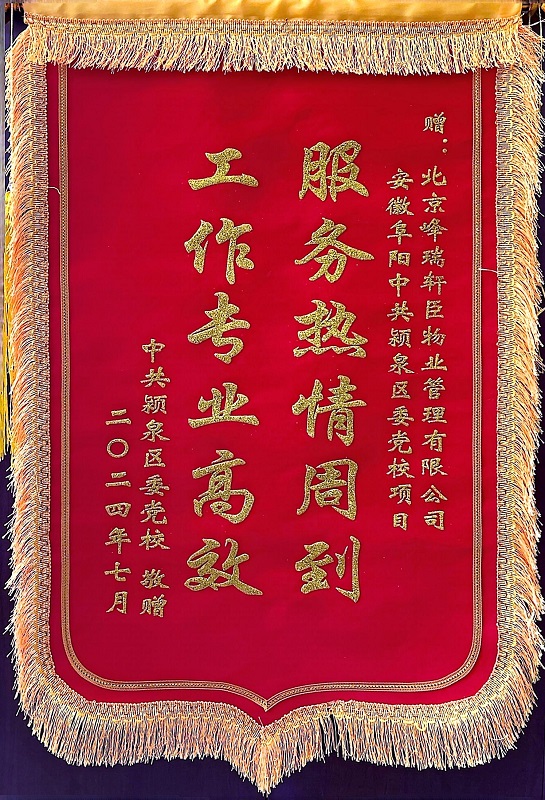 赠：北京峰瑞轩臣物业管理有限公司
安徽阜阳中共颍泉区委党校项目
服务热情周到
工作专业高效
中共颍泉区委党校 敬赠
二〇二四年七月